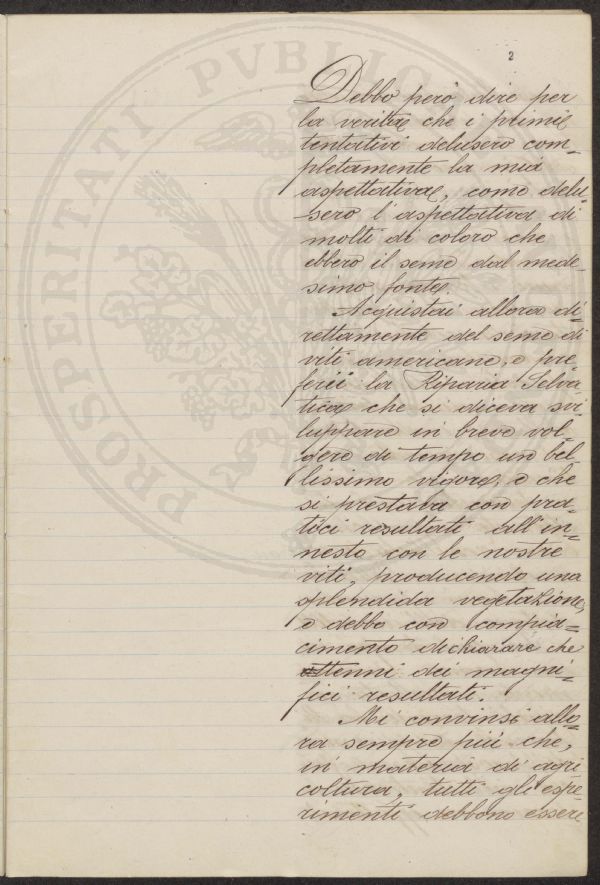 2
PROSPERITATI PVBLIC
Debbo però dire per
la verità che i primi
tentativi delusero com=
pletamente la mia
aspettativa, come delu=
sero l'aspettativa di
molti di coloro che
ebbero il seme dal mede=
simo fonte.
Acquistai allora di=
rettamente del seme di
viti americane, e pre=
ferii la Riparia Selva
tica che si diceva svi=
luppare in breve vol=
gere di tempo un bel=
lissimo vigore, e che
si prestava con pra=
tici resultati all'in=
nesto con le nostre
viti, producendo una
splendida vegetazione,
e debbo con compia=
cimento dichiarare che
ottenni dei magni=
fici resultati.
Mi convinsi allo=
ra sempre più che,
in materia di agri
coltura, tutti gli espe=
rimenti debbono essere